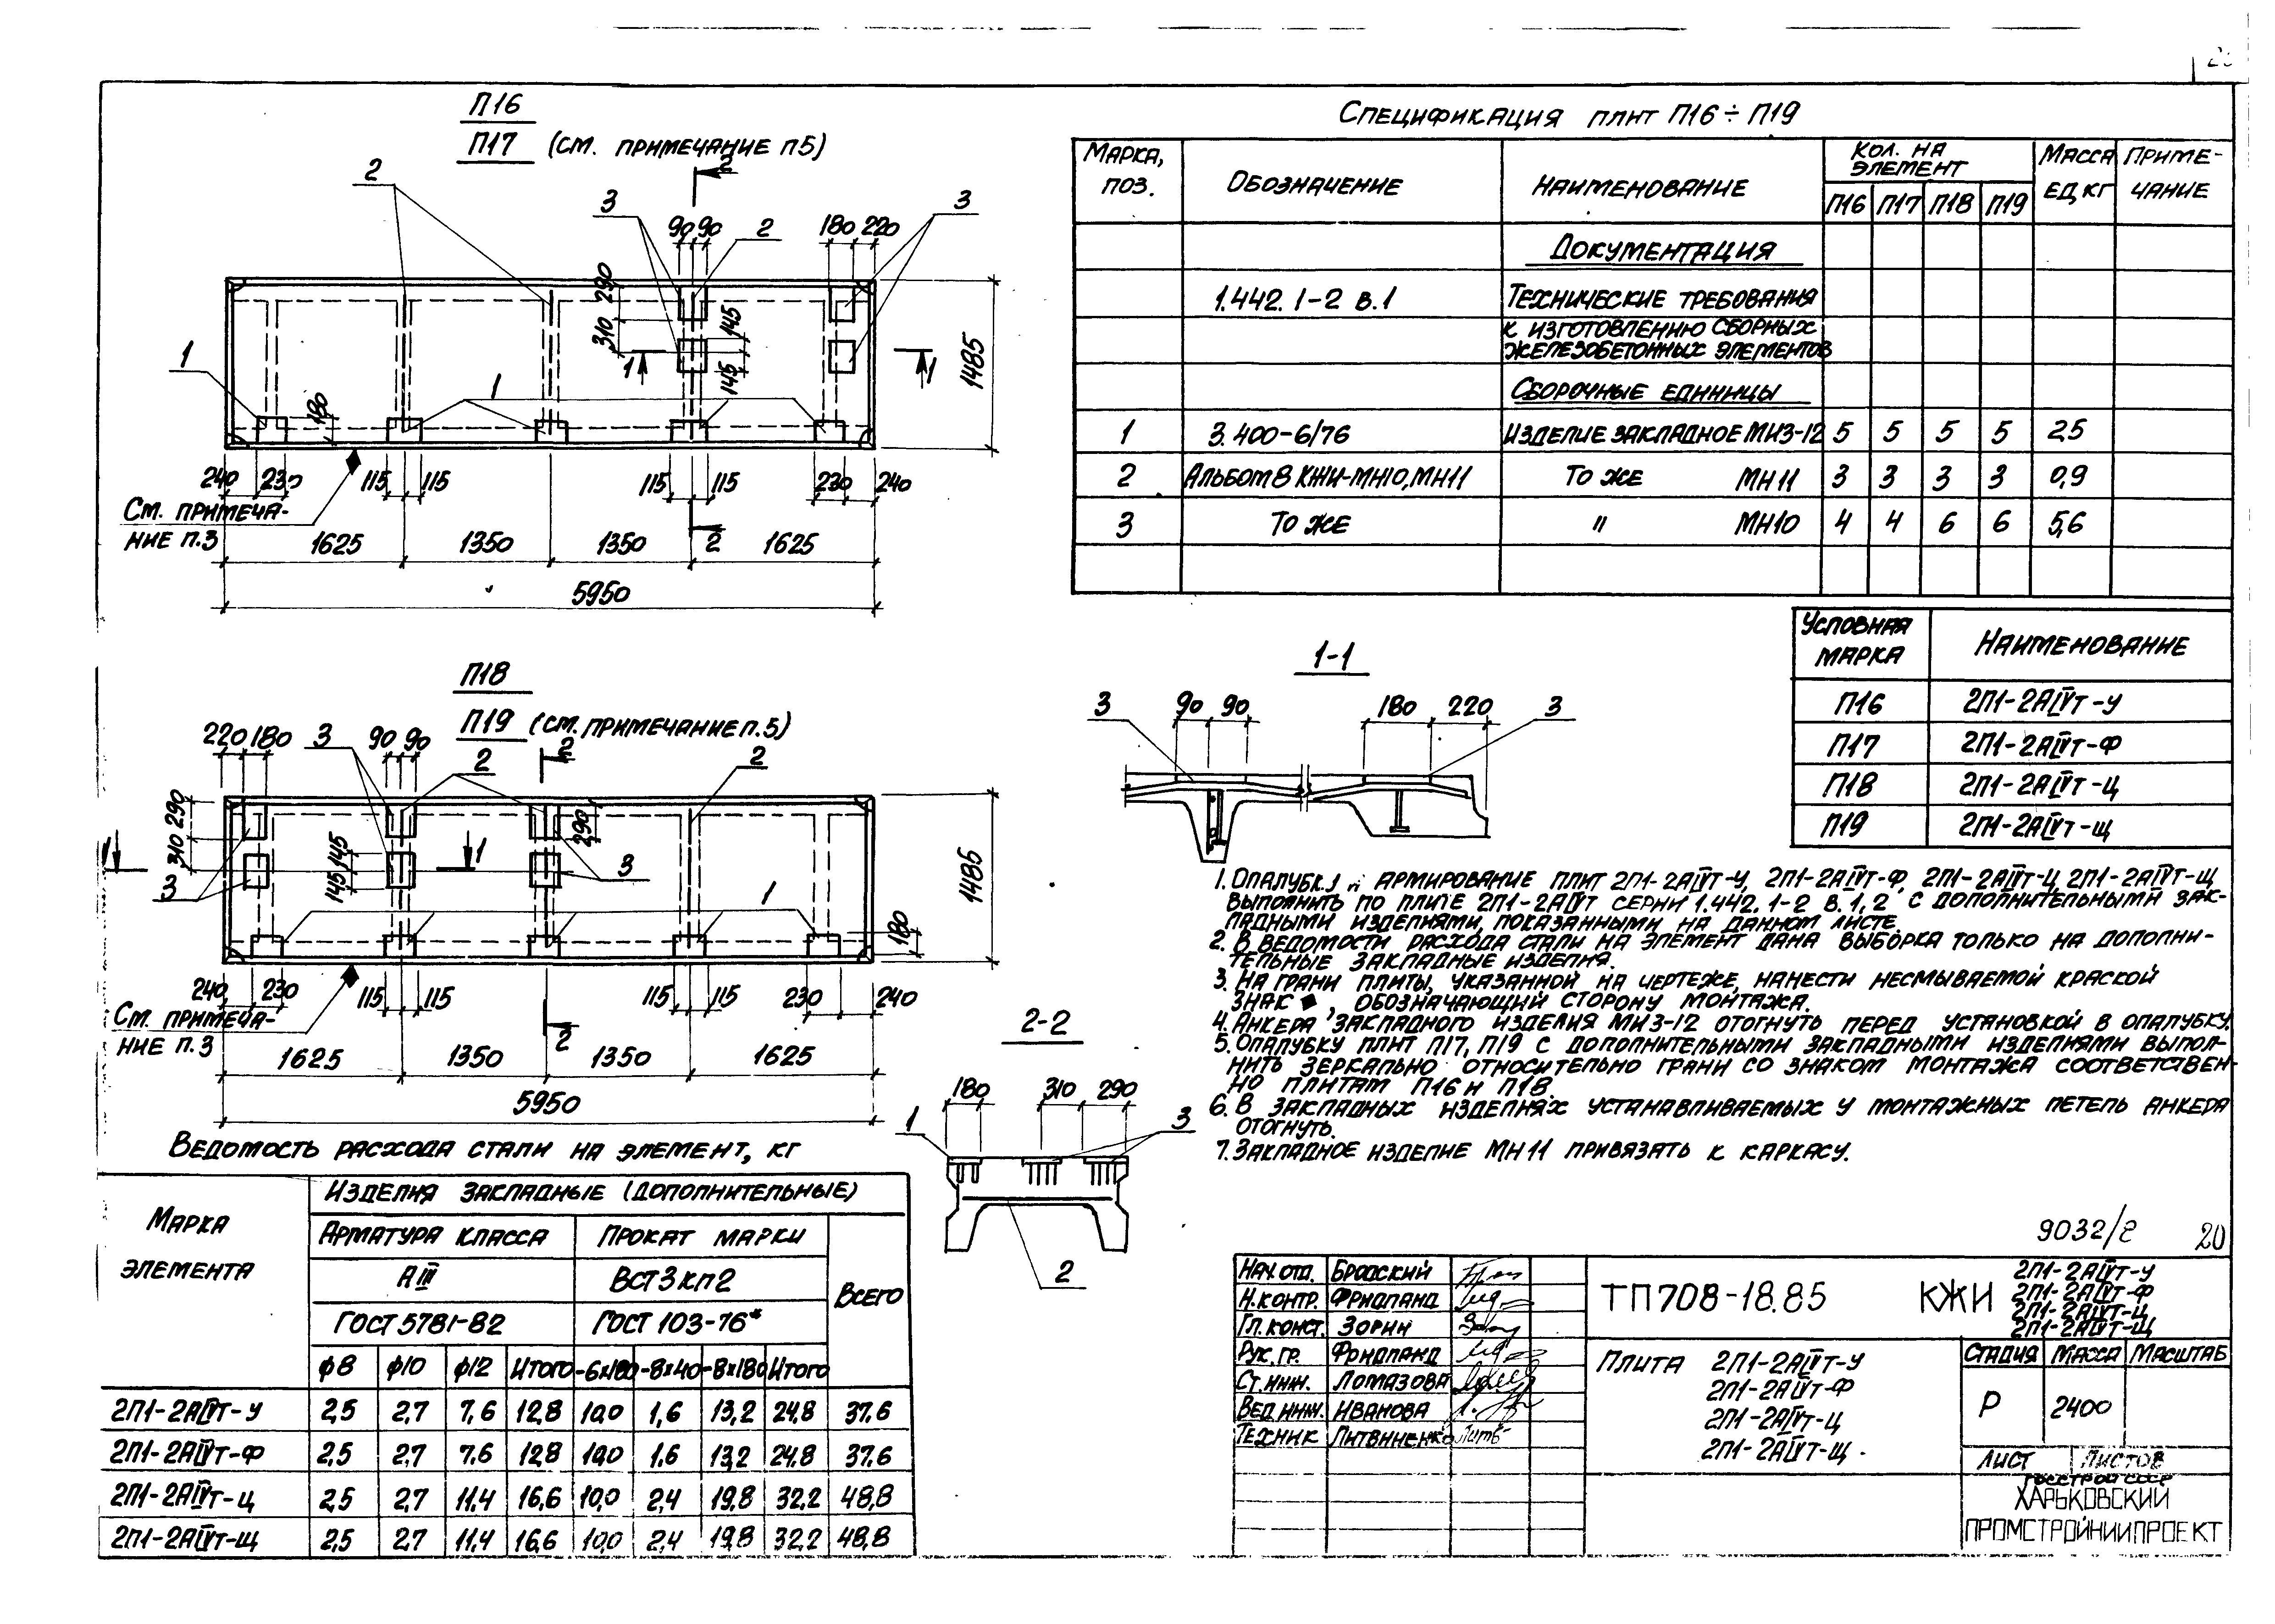 П16
П17 (см. примечание п5)
2
2
3
3
90 90
2
180 220
290
310
145
145
1
1
1
1
180
1485
240 230
115 115
115 115
230 240
См. примеча-
ние п.3
1625 1350 1350 2 1625
5950
П18
П19 (см. примечание п.5)
220 180 3 90 90 2 2 2
290
310
145
145
290
1
1
3
3
1
180
1485
240 230
115 115
115 115
230 240
См. примеча-
ние п.3
2
1625 1350 1350 1625
5950
Спецификация плит П16÷П19
Марка, поз. Обозначение Наименование Кол. на элемент Масса ед, кг Приме-чание
П16 П17 П18 П19
Документация
1.442.1-2 в.1 Технические требования
к изготовлению сборных
железобетонных элементов
Сборочные единицы
1 3.400-6/76 Изделие закладное МИ3-12 5 5 5 5 2,5
2 Альбом 8 КЖИ-МН10,МН11 То же МН11 3 3 3 3 0,9
3 То же " МН10 4 4 6 6 5,6
Условная марка Наименование
П16 2П1-2АIVт-У
П17 2П1-2АIVт-Ф
П18 2П1-2АIVт-Ц
П19 2П1-2АIVт-Щ
1-1
3 90 90 180 220 3
2-2
180 310 290
1 3
2
1. Опалубку и армирование плит 2П1-2АIVт-У, 2П1-2АIVт-Ф, 2П1-2АIVт-Ц, 2П1-2АIVт-Щ
выполнить по плите 2П1-2АIVт серии 1.442.1-2 в.1,2 с дополнительными зак-
ладными изделиями, показанными на данном листе.
2. В ведомости расхода стали на элемент дана выборка только на дополни-
тельные закладные изделия.
3. На грани плиты, указанной на чертеже, нанести несмываемой краской
знак ◆, обозначающий сторону монтажа.
4. Анкера закладного изделия МИ3-12 отогнуть перед установкой в опалубку.
5. Опалубку плит П17, П19 с дополнительными закладными изделиями выпол-
нить зеркально относительно грани со знаком монтажа соответствен-
но плитам П16 и П18.
6. В закладных изделиях устанавливаемых у монтажных петель анкера
отогнуть.
7. Закладное изделие МН11 привязать к каркасу.
Ведомость расхода стали на элемент, кг
Марка элемента Изделия закладные (дополнительные)
Арматура класса Прокат марки Всего
АIII ВСт3кп2
ГОСТ 5781-82 ГОСТ 103-76*
ф8 ф10 ф12 Итого -6х180 -8х40 -8х180 Итого
2П1-2АIVт-У 2,5 2,7 7,6 12,8 10,0 1,6 13,2 24,8 37,6
2П1-2АIVт-Ф 2,5 2,7 7,6 12,8 10,0 1,6 13,2 24,8 37,6
2П1-2АIVт-Ц 2,5 2,7 11,4 16,6 10,0 2,4 19,8 32,2 48,8
2П1-2АIVт-Щ 2,5 2,7 11,4 16,6 10,0 2,4 19,8 32,2 48,8
9032/8 20
Нач. отд. Бродский
Н.контр. Фридланд
Гл.конст. Зорин
Рук. гр. Фридланд
Ст. инж. Ломазова
Вед. инж. Иванова
Техник Литвиненко
ТП708-18.85 КЖИ 2П1-2АIVт-У
2П1-2АIVт-Ф
2П1-2АIVт-Ц
2П1-2АIVт-Щ
Плита 2П1-2АIVт-У
2П1-2АIVт-Ф
2П1-2АIVт-Ц
2П1-2АIVт-Щ
Стадия Масса Масштаб
Р 2400
Лист Листов
Госстрой СССР
Харьковский
Промстройниипроект